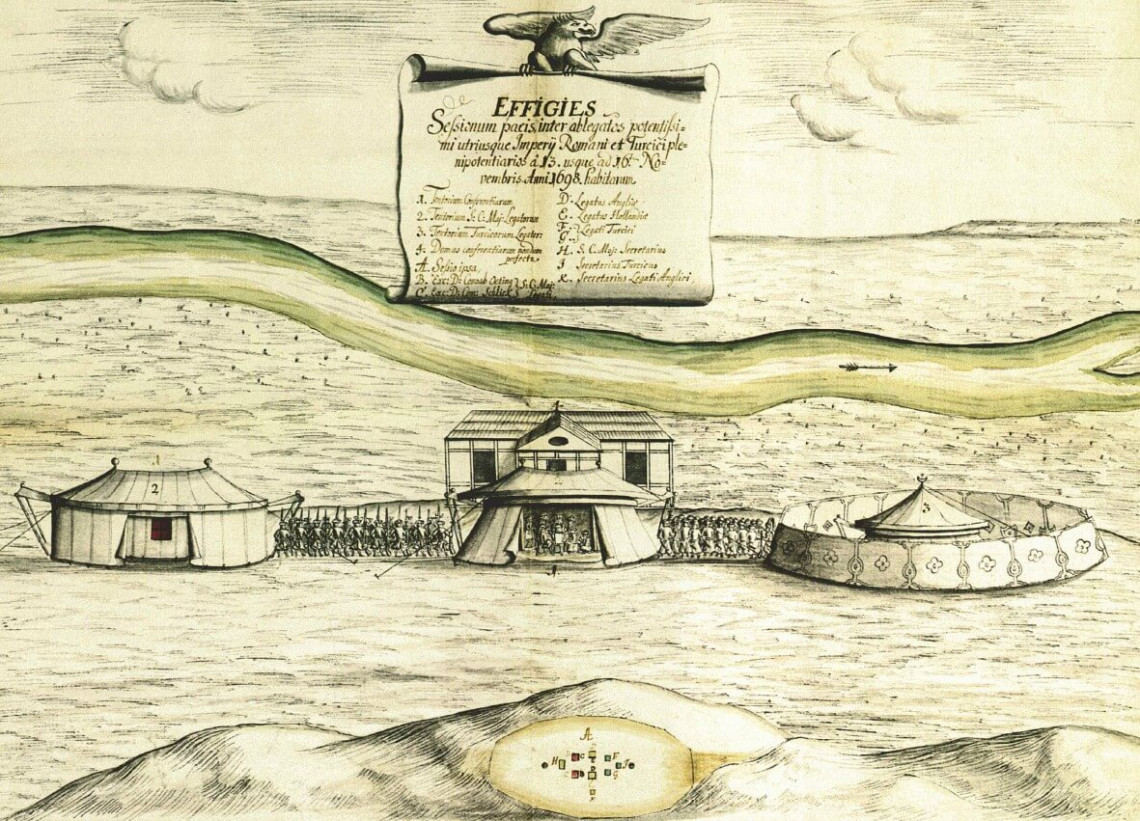 EFFIGIES
Sessionum pacis inter ablegatos potentissi-
mi utriusque Imperij Romani et Turcici ple-
nipotentiarios à 13. usque ad 16t No-
vembris Anni 1698. habitarum.
1. Tentorium Conferentiarum
2. Tentorium S. C. Maj. Legatorum
3. Tentorium Turcicorum Legator:
4. Domus conferentiarum nondum
perfecta.
A. Sessio ipsa.
B. Exc: D: Comes Ötting
C. Exc: D: Com: Schlick
S. C. Maj:
Legati.
D. Legatus Angliæ
E. Legatus Hollandiæ
F.
G.
Legati Turcici
H. S. C. Maj: Secretarius
J Secretarius Turcicus
K. Secretarius Legati Anglici,
2
3
A
H
C
B
F
G
J